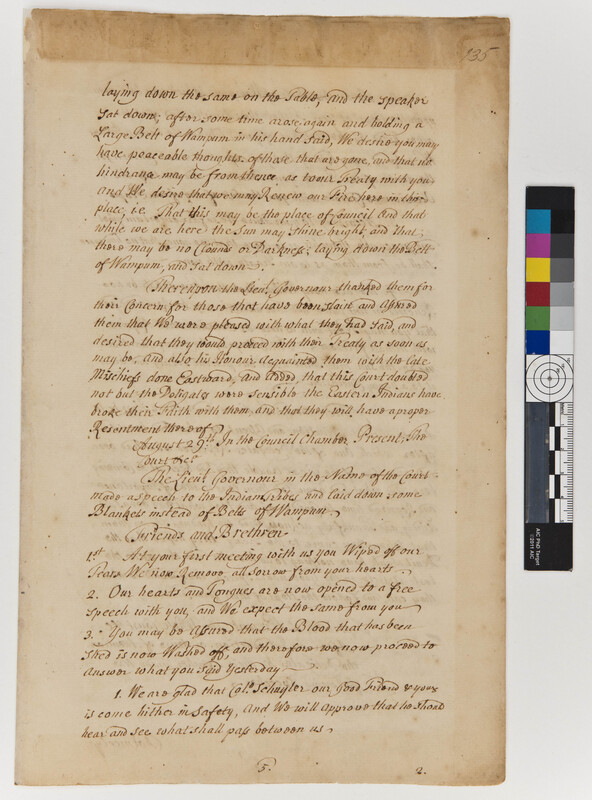 135
laying down the same on the Table, and the speaker
sat down, after some time arose again and holding a
Large Belt of Wampum in his hand said, We desire you may
have peaceable thoughts of those that are gone, and that no
hindrance may be from thence as to our Treaty with you
And We desire that we may Renew our Fire here in this
place, i.e. That this may be the place of Council And that
while we are here the Sun may shine bright and that
there may be no Clouds or Darkness; laying down the Belt
of Wampum, and sat down.
Thereupon the Lieut. Governour thanked them for
their Concern for those that have been slain and Assured
them that We were pleased with what they had said, and
desired that they would proceed with their Treaty as soon as
may be, And also his Honour Acquainted them with the late
Mischiefs done Eastward, and added, that this Court doubted
not but the Deligates were sensible the Eastern Indians have
broke their Faith with them, and that they will have a proper
Resentment thereof
August 29th. In the Council Chamber Present, The
Court &ca
The Lieut. Governour in the Name of the Court
made a speech to the Indian and laid down some
Blankets instead of Belts of Wampum.
Friends and Brethren
1st At your first meeting with us you Wiped off our
Tears We now Remove all sorrow from your hearts.
2. Our hearts and Tongues are now opened to a free
speech with you, and We expect the same from you
3. You may be Assured that the Blood that has been
shed is now Washed off, and therefore we now proceed to
Answer what you said Yesterday
1. We are glad that Colo. Schuyler our good Friend & yours
is come hither in safety, And We will approve that he shoud
hear and see what shall pass between us.
5. 2.
AIC PhD Target
©2011 AIC